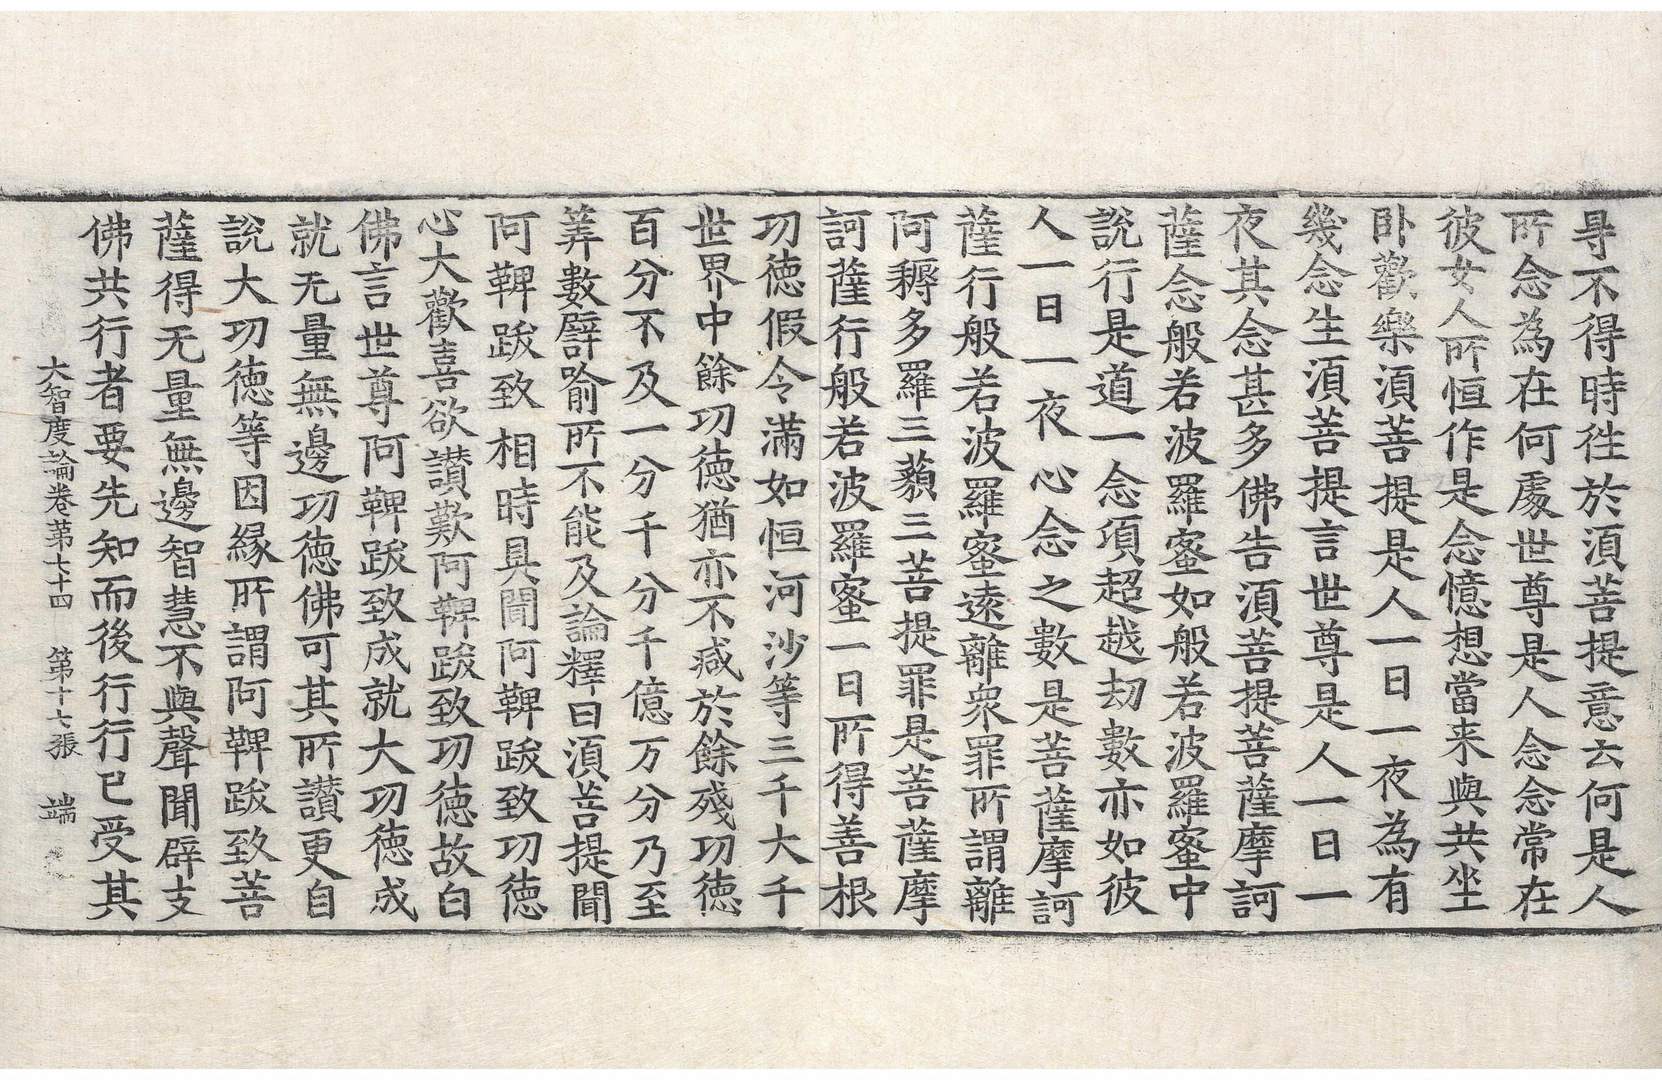 㝵不得時徃於湏菩提意云何是人
所念為在何處世尊是人念念常在
彼女人所恒作是念憶想當来與共坐
卧歡樂湏菩提是人一日一夜為有
幾念生湏菩提言世尊是人一日一
夜其念甚多佛告湏菩提菩薩摩訶
薩念般若波羅蜜如般若波羅蜜中
說行是道一念頃超越劫數亦如彼
人一日一夜心念之數是菩薩摩訶
薩行般若波羅蜜遠離衆罪所謂離
阿耨多羅三藐三菩提罪是菩薩摩
訶薩行般若波羅蜜一日所得善根
功徳假令滿如恒河沙等三千大千
世界中餘功徳猶亦不減於餘殘功徳
百分不及一分千分千億万分乃至
筭數譬喻所不能及論釋曰湏菩提聞
阿鞞跋致相時具聞阿鞞跋致功徳
心大歡喜欲讃歎阿鞞跋致功徳故白
佛言世尊阿鞞跋致成就大功徳成
就无量無邊功徳佛可其所讃更自
說大功徳等因緣所謂阿鞞跋致菩
薩得无量無邊智慧不與聲聞辟支
佛共行者要先知而後行行已受其
大智度論卷苐七十四 第十七張 端